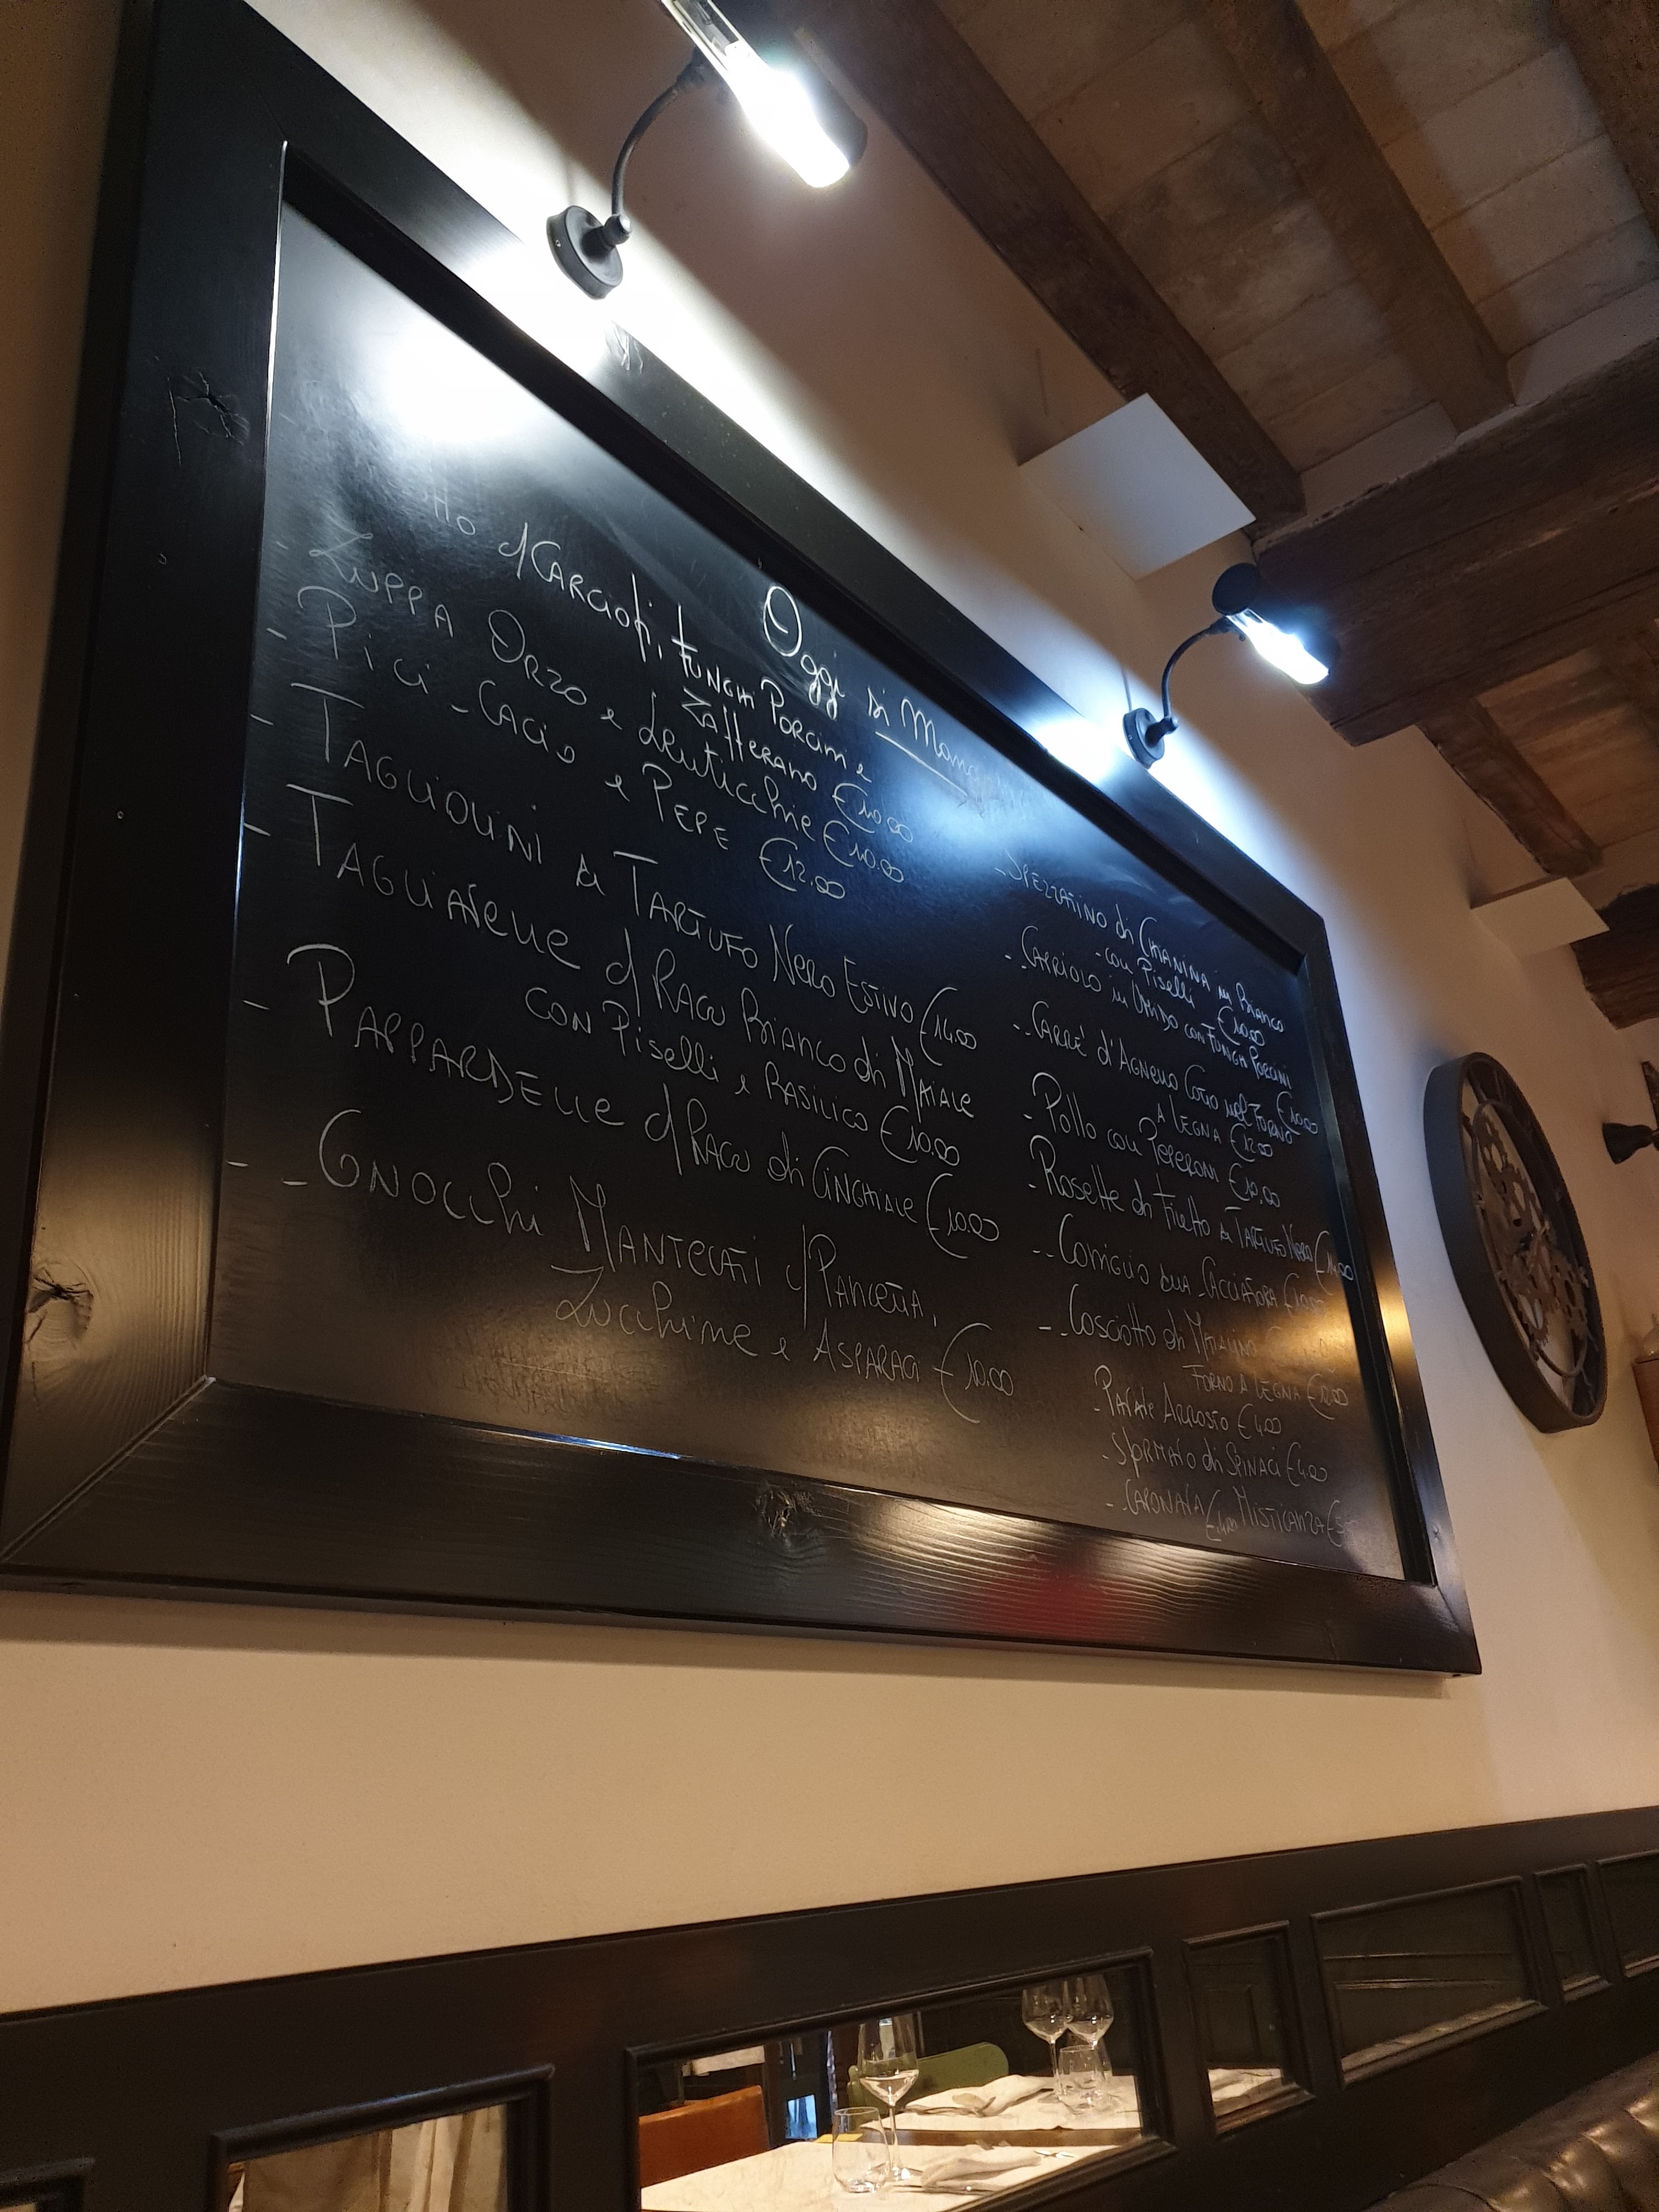 Oggi si
c/Carciofi, Funghi Porcini e
Zafferano €10.00
- Zuppa Orzo e Lenticchie €10.00
- Pici Cacio e Pepe €12.00
- Tagliolini al Tartufo Nero Estivo €14.00
- Tagliatelle c/Ragù Bianco di Maiale
con Piselli e Basilico €10.00
- Pappardelle c/Ragù di Cinghiale €10.00
- Gnocchi Mantecati c/Pancetta,
Zucchine e Asparagi €10.00
- Spezzatino di Chianina in Bianco
con Piselli €10.00
- Capriolo in Umido con Funghi Porcini
€10.00
- Carrè d'Agnello Cotto nel Forno
a Legna €12.00
- Pollo con Peperoni €10.00
- Rosette di Filetto al Tartufo Nero
- Coniglio alla Cacciatora
- Cosciotto di Maialino
Forno a Legna
- Patate Arrosto €4.00
- Sformato di Spinaci €4.00
- Caponata Misticanza